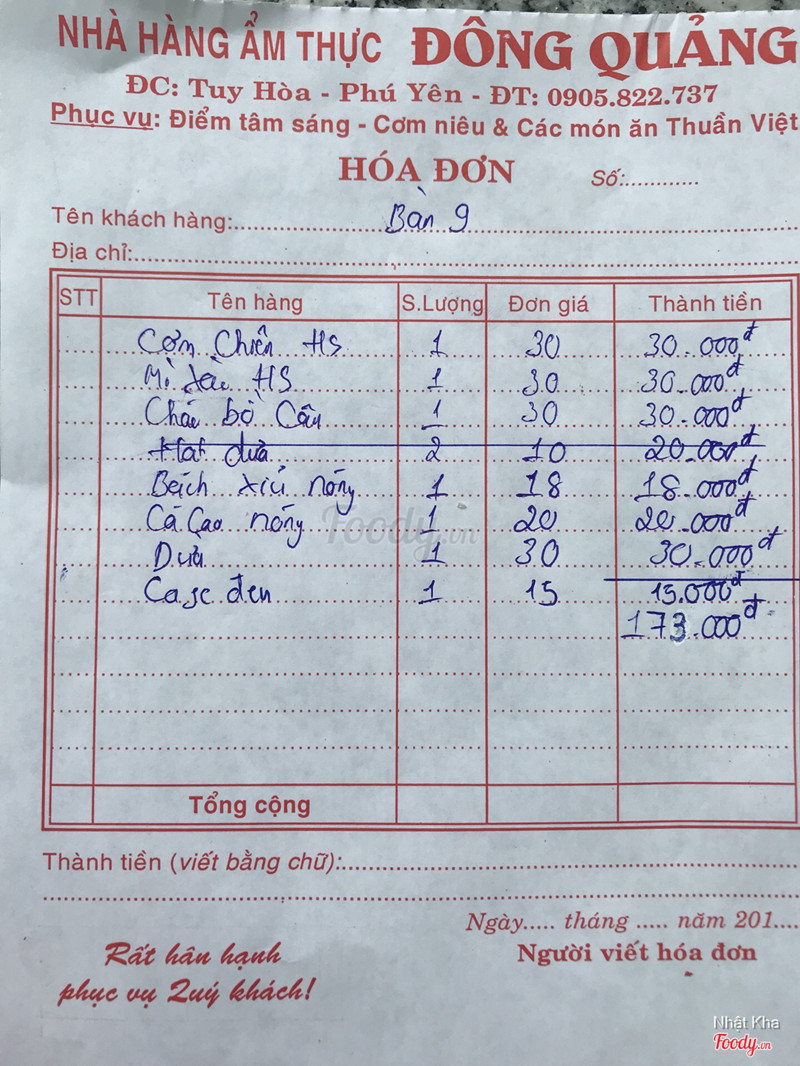 NHÀ HÀNG ẨM THỰC ĐÔNG QUẢNG
ĐC: Tuy Hòa - Phú Yên - ĐT: 0905.822.737
Phục vụ: Điểm tâm sáng - Cơm niêu & Các món ăn Thuần Việt
HÓA ĐƠN Số:............
Tên khách hàng: Bàn 9
Địa chỉ:
STT Tên hàng S.Lượng Đơn giá Thành tiền
Cơm Chiên HS 1 30 30.000đ
Mì xào HS 1 30 30.000đ
Cháo bồ Câu 1 30 30.000đ
Hat dưa 2 10 20.000đ
Bạch xỉu nóng 1 18 18.000đ
Cá Cao nóng 1 20 20.000đ
Dưa 1 30 30.000đ
Case đen 1 15 15.000đ
173.000đ
Tổng cộng
Thành tiền (viết bằng chữ):
Ngày..... tháng ..... năm 201....
Rất hân hạnh Người viết hóa đơn
phục vụ Quý khách!
Foody.vn
Nhật Kha
Foody.vn